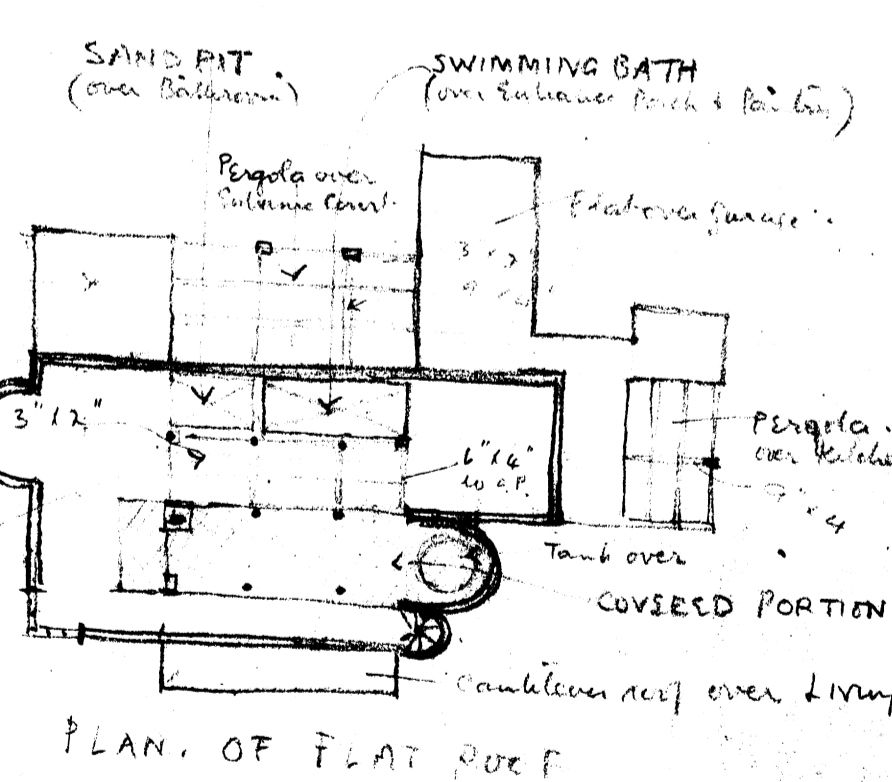 SAND PIT
(over Bathroom)
SWIMMING BATH
(over Entrance Porch & Pantry)
Pergola over
Entrance Court
Flat over garage
3" x 2"
6" x 4"
to c.p.
PERgola
over Kitche
9" x 4
Tank over
COVERED PORTION
Cantilever roof over Living
PLAN. OF FLAT ROOF